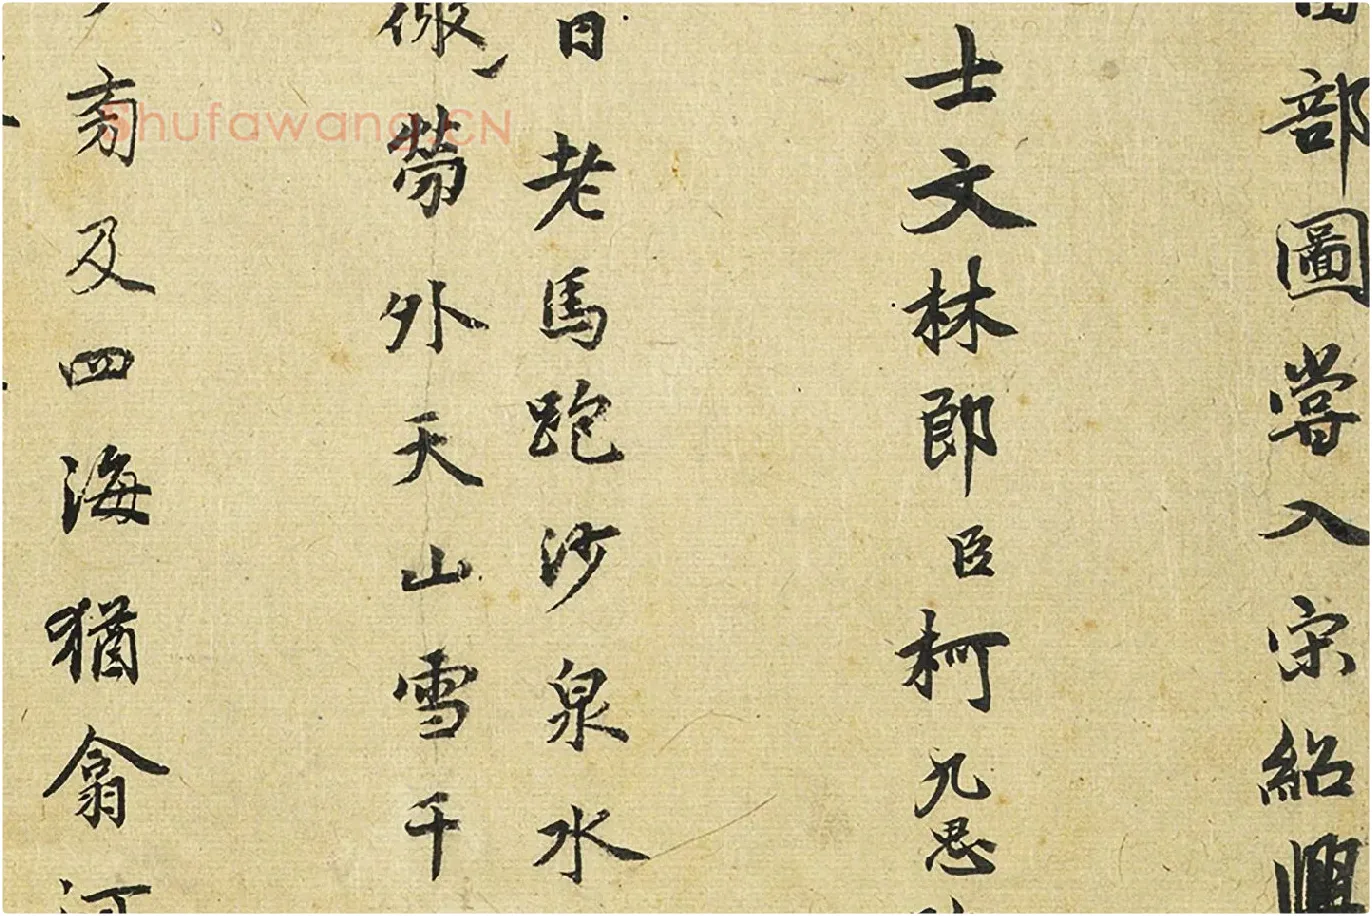 部圖嘗入宋紹興
士文林郎臣柯九思
日老馬跑沙泉水
勞外天山雪千
及四海猶翕河
Shufawang.CN